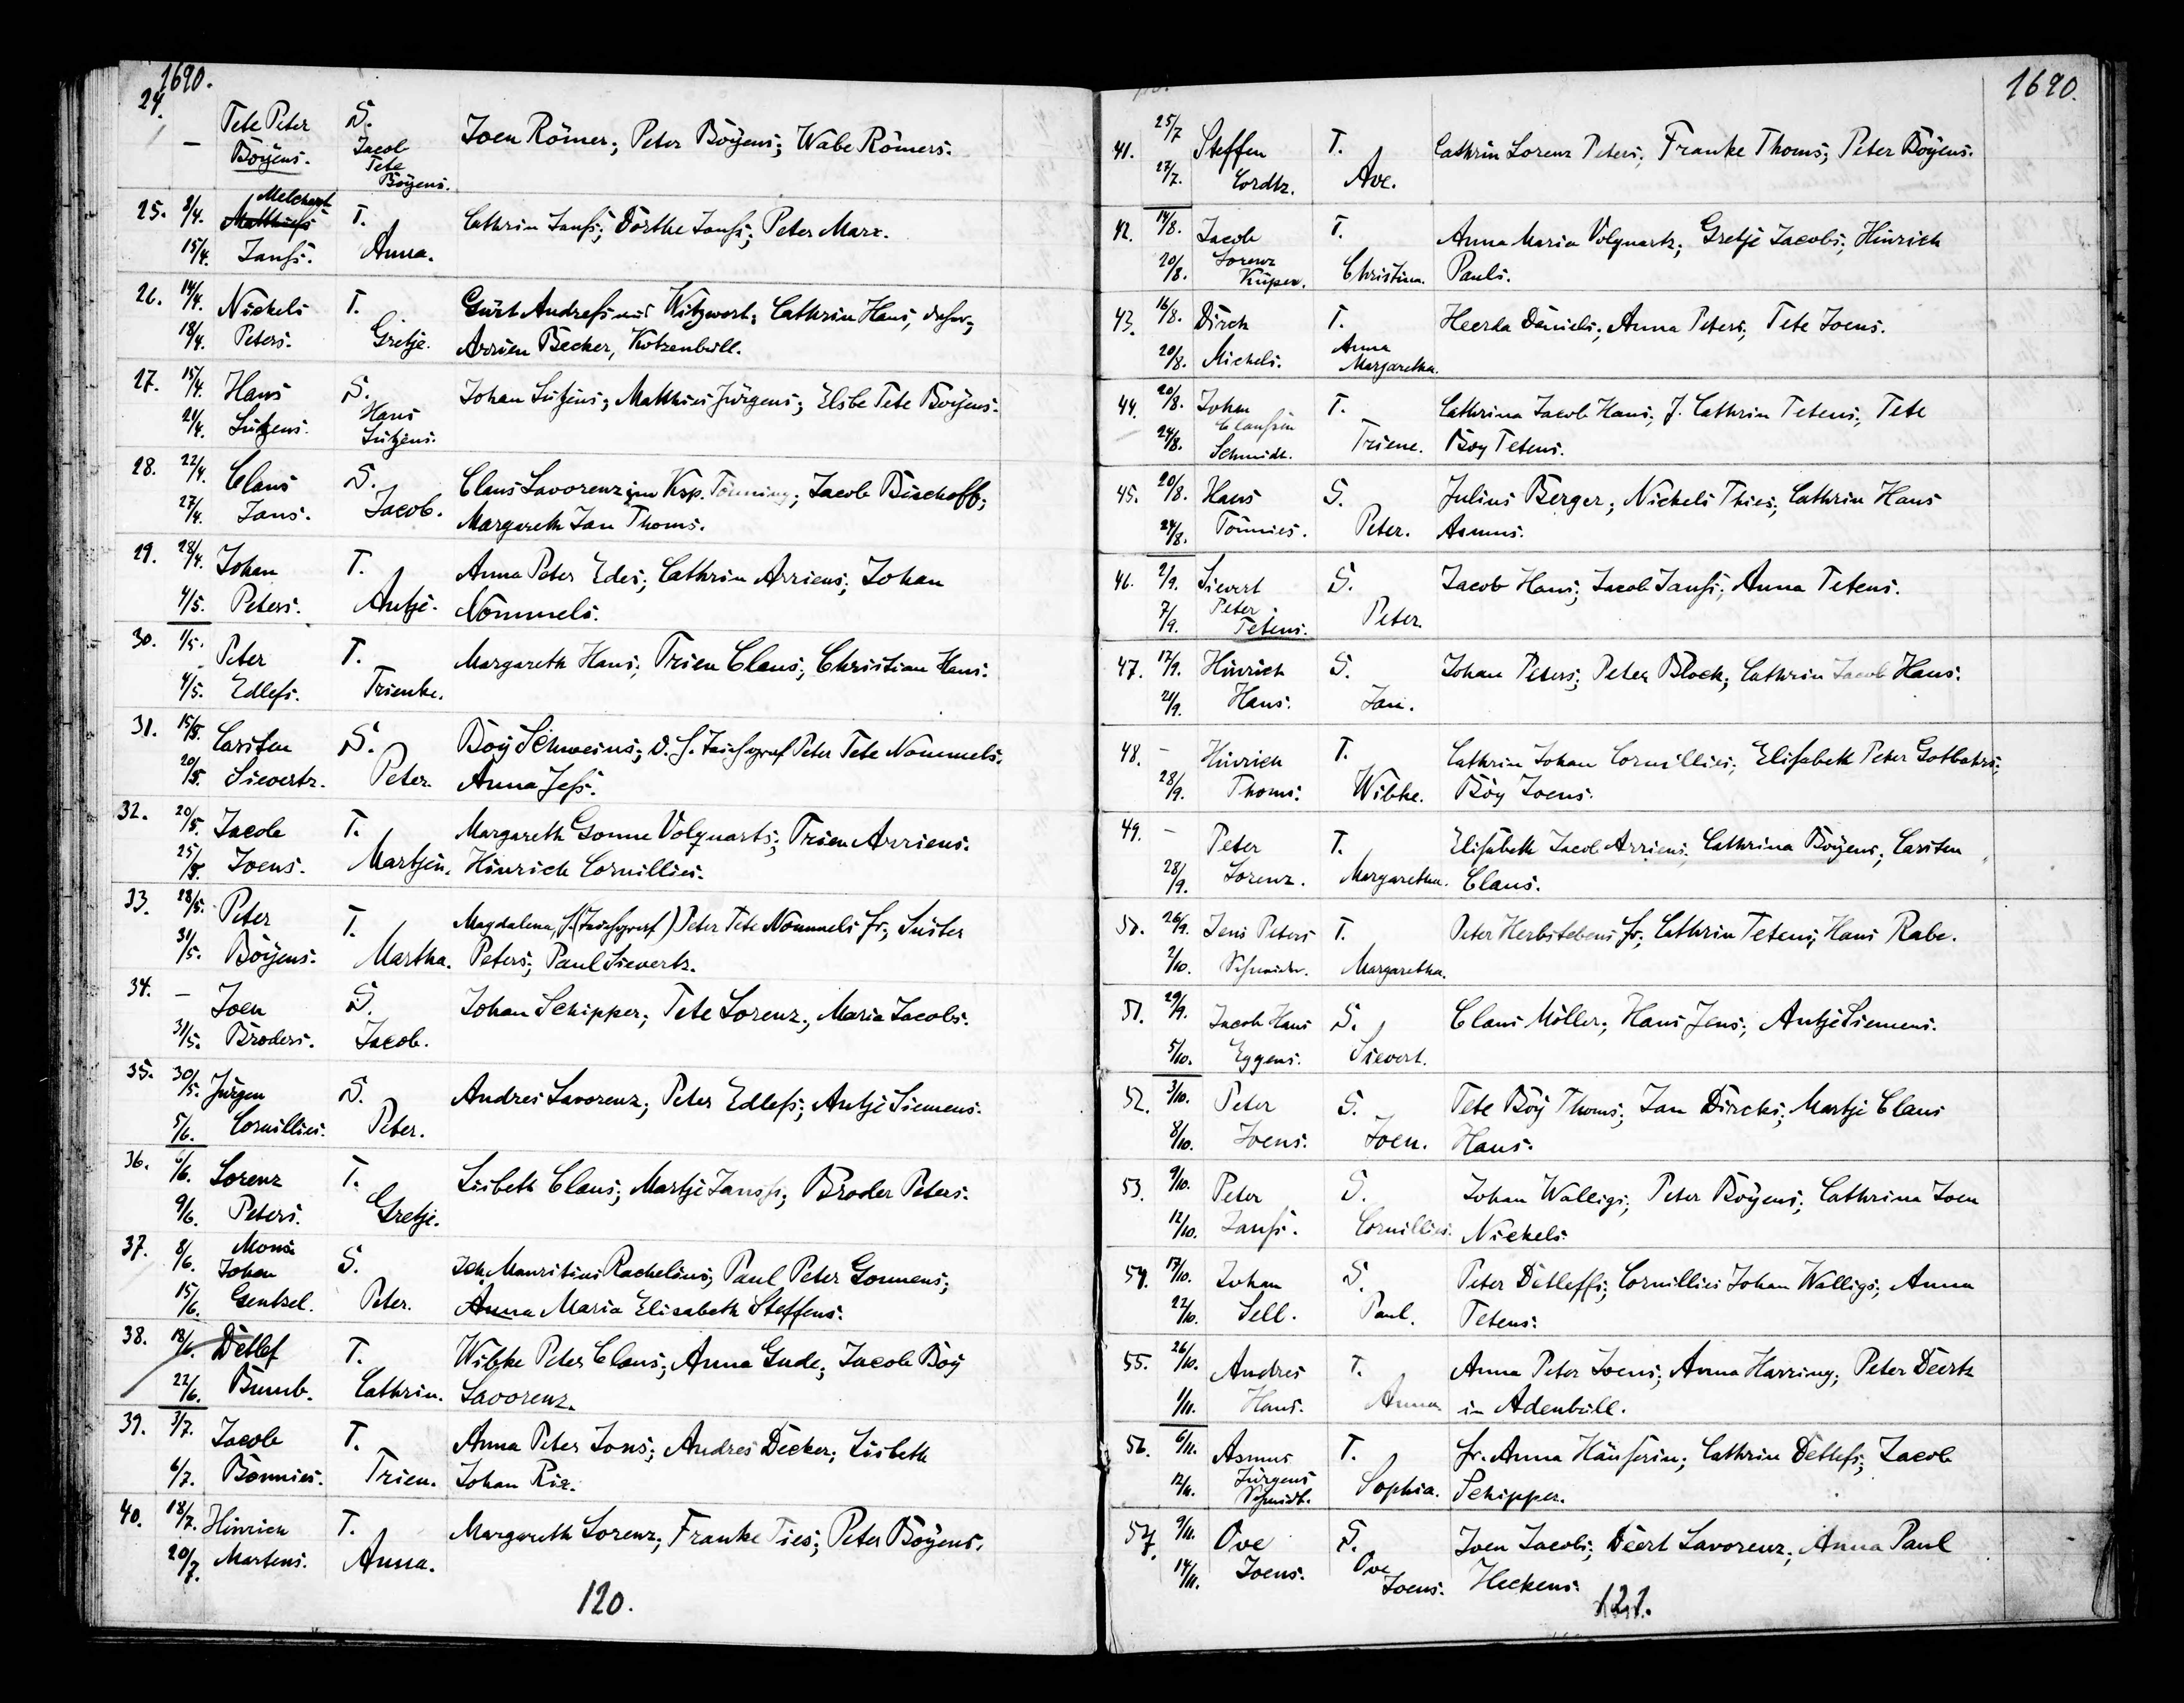 1690.
24. — Tete Peter Böÿens. S. Jacob Tete Böyens. Joen Römer; Peter Böÿens; Wabe Römers.
25. 8/4. Melchert T. Cathrin Janß; Dorthe Janß; Peter Marx.
15/4. Janß. Anna.
26. 14/4. Nickels T. Gürt Andreß aus Witzwort; Cathrin Hans,
18/4. Peters. Gretje. Arrien Becker, Kotzenbüll.
27. 15/4. Hans S. Johan Lützens; Matthies Jürgens; Elsbe Tete Boÿens.
21/4. Lützens. Hans Lützens.
28. 22/4. Claus S. Claus Lavorenz im Ksp. Tönning; Jacob Bischoff;
27/4. Jans. Jacob. Margareth Jan Thoms.
29. 28/4. Johan T. Anna Peter Edes; Cathrin Arriens; Johan
4/5. Peters. Antje. Nommels.
30. 1/5. Peter T. Margareth Hans; Trien Claus; Christian Hans.
4/5. Edleß. Trienke.
31. 15/5. Carsten S. Boÿ Schweins; Peter Tete Nommels.
20/5. Sievertz. Peter. Anna Jeß.
32. 20/5. Jacob T. Margareth Gonne Volquarts; Trien Arriens.
25/5. Joens. Martjen. Hinrich Cornillies.
33. 28/5. Peter T. Magdalena, Peter Tete Nommels Fr; Süster
31/5. Böÿens. Martha. Peters; Paul Sievertz.
34. — Joen S. Johan Schipper; Tete Lorenz; Maria Jacobs.
31/5. Broders. Jacob.
35. 30/5. Jürgen S. Andres Lavorenz; Peter Edleß; Antje Siemens.
5/6. Cornillies. Peter.
36. 6/6. Lorenz T. Lisbeth Claus; Martje Janß; Broder Peters.
9/6. Peters. Gretje.
37. 8/6. Mons. Johan S. Joh. Mauritius Rachelius; Paul Peter Gonnens;
15/6. Gentzel. Peter. Anna Maria Elisabeth Steffens.
38. 18/6. Detlef T. Wibke Peter Claus; Anna Gude; Jacob Boÿ
22/6. Bumb. Cathrin. Lavorenz.
39. 3/7. Jacob T. Anna Peter Jons; Andres Decker; Lisbeth
6/7. Bonnies. Trien. Johan Rix.
40. 18/7. Hinrich T. Margareth Lorenz; Franke Ties; Peter Böÿens.
20/7. Martens. Anna.
120.
1690.
41. 25/7 Steffen T. Cathrin Lorenz Peters; Franke Thoms; Peter Böÿens.
27/7. Cordtz. Ave.
42. 14/8. Jacob T. Anna Maria Volquartz; Gretje Jacobs; Hinrich
20/8. Lorenz Küper. Christina. Pauls.
43. 16/8. Dirck T. Heerka Daniels; Anna Peters; Tete Joens.
20/8. Michels. Anna Margaretha.
44. 20/8. Johan T. Cathrina Jacob Hans; J. Cathrin Tetens; Tete
24/8. Claußen Schmidt. Triene. Boy Tetens.
45. 20/8. Hans S. Julius Berger; Nickels Thies; Cathrin Hans
24/8. Tönnies. Peter. Asmus.
46. 2/9. Sievert S. Jacob Hans; Jacob Janß; Anna Tetens.
7/9. Peter Tetens. Peter.
47. 17/9. Hinrich S. Johan Peters; Peter Block; Cathrin Jacob Hans.
21/9. Hans. Jan.
48. — Hinrich T. Cathrin Johan Cornillies; Elisabeth Peter Gotbahrs;
28/9. Thoms. Wibke. Böy Joens.
49. — Peter T. Elisabeth Jacob Arriens. Cathrina Böyens; Carsten
28/9. Lorenz. Margaretha. Claus.
50. 26/9. Jens Peters T. Peter Herbstebens Fr; Cathrin Tetens; Hans Rabe.
2/10. Schneider. Margaretha.
51. 29/9. Jacob Hans S. Claus Möller; Hans Jens; Antje Siemens.
5/10. Eggens. Sievert.
52. 3/10. Peter S. Tete Böÿ Thoms; Jan Dircks; Martje Claus
8/10. Joens. Joen. Hans.
53. 9/10. Peter S. Johan Walligs; Peter Böÿens; Cathrina Joen
12/10. Janß. Cornillies. Nickels.
54. 17/10. Johan S. Peter Detleffs; Cornillies Johan Walligs; Anna
22/10. Sell. Paul. Tetens.
55. 26/10. Andres T. Anna Peter Joens; Anna Harring; Peter Deertz
1/11. Hans. Anna. in Adenbüll.
56. 6/11. Asmus T. Fr. Anna Häußerin; Cathrin Detlefs; Jacob
12/11. Jürgens Schmidt. Sophia. Schipper.
57. 9/11. Ove S. Joen Jacobs; Deert Lavorenz; Anna Paul
14/11. Joens. Ove Joens. Heckens.
121.